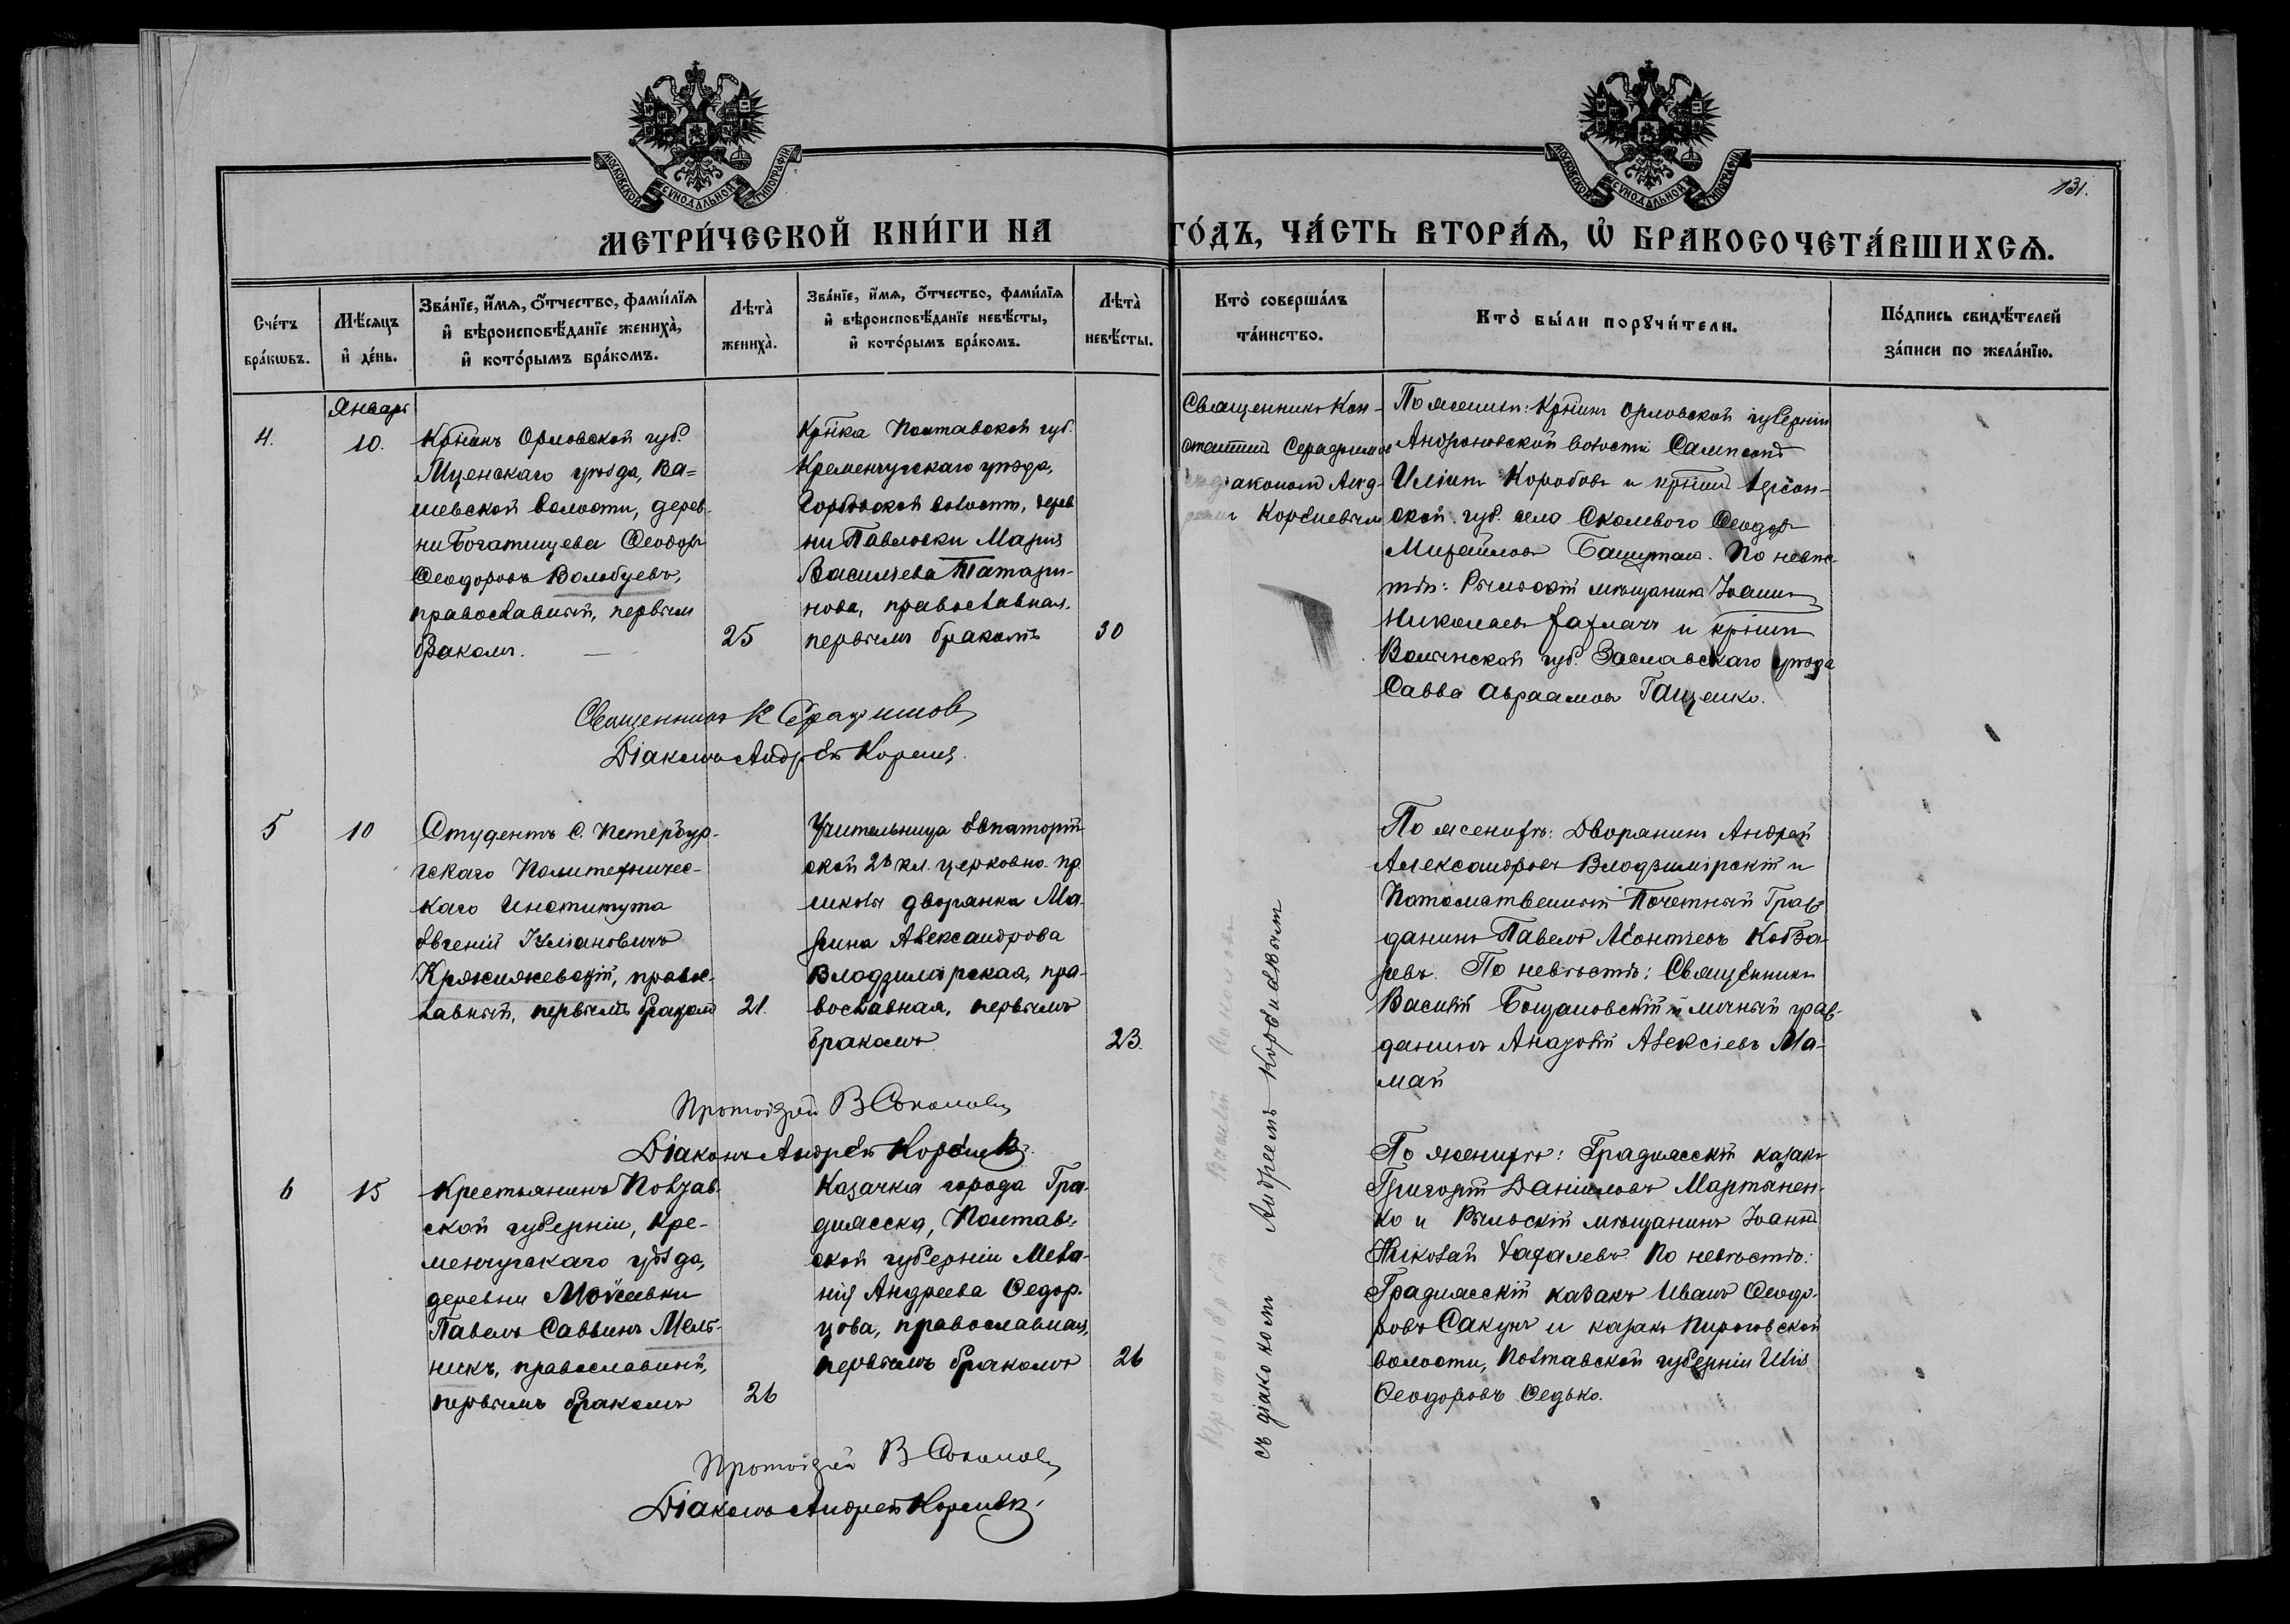 МОСКОВСКОЙ СѴНОДАЛЬНОЙ ТИПОГРАФІИ
МОСКОВСКОЙ СѴНОДАЛЬНОЙ ТИПОГРАФІИ
131.
МЕТРИ́ЧЕСКОЙ КНИ́ГИ НА ГО́ДЪ, ЧА́СТЬ ВТОРА́Ѧ, Ѡ҆ БРАКОСОЧЕТА́ВШИХСѦ.
Сче́тъ бра́кѡвъ.
Мѣ́сѧцъ и҆ де́нь.
Зва́нїе, и҆́мѧ, ѻ҆́тчество, фами́лїѧ и҆ вѣроисповѣ́данїе жениха̀, и҆ кото́рымъ бра́комъ.
Лѣта̀ жениха̀.
Зва́нїе, и҆́мѧ, ѻ҆́тчество, фами́лїѧ и҆ вѣроисповѣ́данїе невѣ́сты, и҆ кото́рымъ бра́комъ.
Лѣта̀ невѣ́сты.
Кто̀ соверша́лъ та́инство.
Кто̀ бы́ли порꙋчи́тели.
По́дпись свидѣ́телей за́писи по жела́нїю.
Январь
4.
10.
Крнинъ Орловской губ.
Мценскаго уѣзда, Ва=
шевской волости, дерев-
ни Богатищева Ѳеодоръ
Ѳеодоровъ Волобуевъ,
православный, первымъ
бракомъ.
25
Крнка Полтавской губ.
Кременчугскаго уѣзда,
волости, дерев
ни Павловки Марія
Васильева Татари-
нова, православная,
первымъ бракомъ
30
Священникъ Кон-
стантинъ Серафимовъ
діакономъ Анд-
Корсиевымъ
По женихѣ: Крнинъ Орловской губерніи
волости Сампсонъ
Иліинъ Коробовъ и крнинъ Херсон-
ской губ. села Сколевого Ѳеодоръ
Михайловъ По невѣс-
тѣ: Рыльскій мѣщанинъ Іоаннъ
Николаевъ и крнинъ
Волынской губ. Заславскаго уѣзда
Савва Авраамовъ Гащенко.
Священникъ К Серафимовъ
Діаконъ Андрей
5
10
Студентъ С. Петербур-
гскаго Политехничес-
каго Института
Евгеній Іуліановичъ
Кржижевскій, правос-
лавный, первымъ бракомъ
21.
Учительница Евпаторій
ской 2хъ кл. церковно-пр.
школы дворянка Ма-
рина Александрова
Влодзимірская, пра-
вославная, первымъ
бракомъ
23.
По женихѣ: Дворянинъ Андрей
Александровъ Влодзимірскій и
Потомственный Почетный Граж-
данинъ Павелъ Леонтьевъ Кобза-
ревъ. По невѣстѣ: Священникъ
Василій и личный граж-
данинъ Алексіевъ Ма-
май
Протоіерей В Соколовъ
Діаконъ Андрей
съ діакономъ Андреемъ
6
15
Крестьянинъ Полтав-
ской губерніи, Кре-
менчугскаго уѣзда,
деревни Мойсеевки
Павелъ Саввинъ Мель-
никъ, православный,
первымъ бракомъ
26
Казачка города Гра-
дижска, Полтав-
ской губерніи Мела-
нія Андреева Ѳедор-
цова, православная,
первымъ бракомъ
26
По женихѣ: Градижскій казакъ
Григорій Даніиловъ Мартынен-
ко и Рыльскій мѣщанинъ Іоаннъ
Николай По невѣстѣ:
Градижскій казакъ Иванъ Ѳеодо-
ровъ Сакунъ и казакъ Пироговской
волости, Полтавской губерніи Илія
Ѳеодоровъ Ѳедько.
Протоіерей В Соколовъ
Діаконъ Андрей